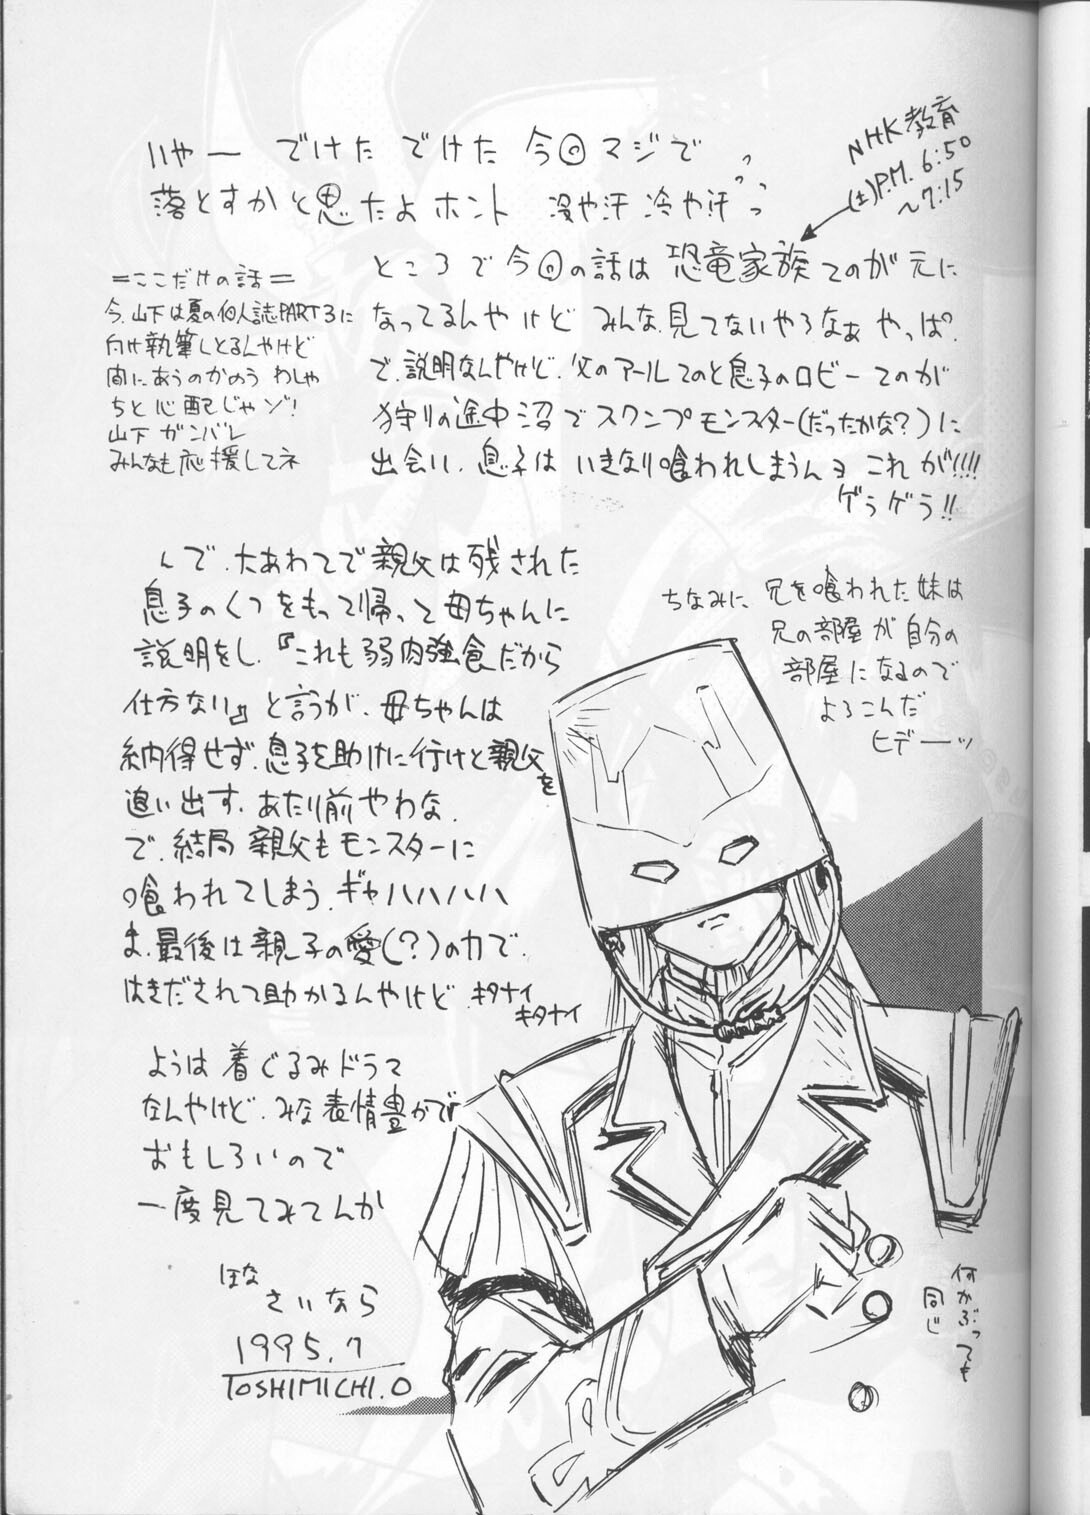 いやー でけた でけた 今回マジで
落とすかと思たよホント 冷や汗 冷や汗
NHK教育
(土)P.M. 6:50
～7:15
ところで今回の話は 恐竜家族 てのが元に
なってるんやけど みんな見てないやろなぁ やっぱ？
で、説明なんやけど、父のアールてのと息子のロビーてのが
狩りの途中沼でスワンプモンスター(だったかな？)に
出会い、息子は いきなり喰われしまうんヨ これが!!!!
ゲラゲラ!!
＝ここだけの話＝
今、山下は夏の個人誌PART3に
向け執筆しとるんやけど
間にあうのかのう わしゃ
ちと心配じゃゾ!
山下 ガンバレ
みんなも応援してネ
んで、大あわてで親父は残された
息子のくつをもって帰って母ちゃんに
説明をし、『これも弱肉強食だから
仕方ない』と言うが、母ちゃんは
納得せず、息子を助けに行けと親父を
追い出す、あたり前やわな、
で、結局 親父もモンスターに
喰われてしまう、ギャハハハハハ
ま、最後は親子の愛(？)の力で、
はきだされて助かるんやけど キタナイ
キタナイ
ちなみに 兄を喰われた妹は
兄の部屋が自分の
部屋になるので
よろこんだ
ヒデーッ
ようは着ぐるみドラマ
なんやけど、みな表情豊かで
おもしろいので
一度見てみてんか
ほな
さいなら
1995.7
TOSHIMICHI.O
何かぶっても
同じ